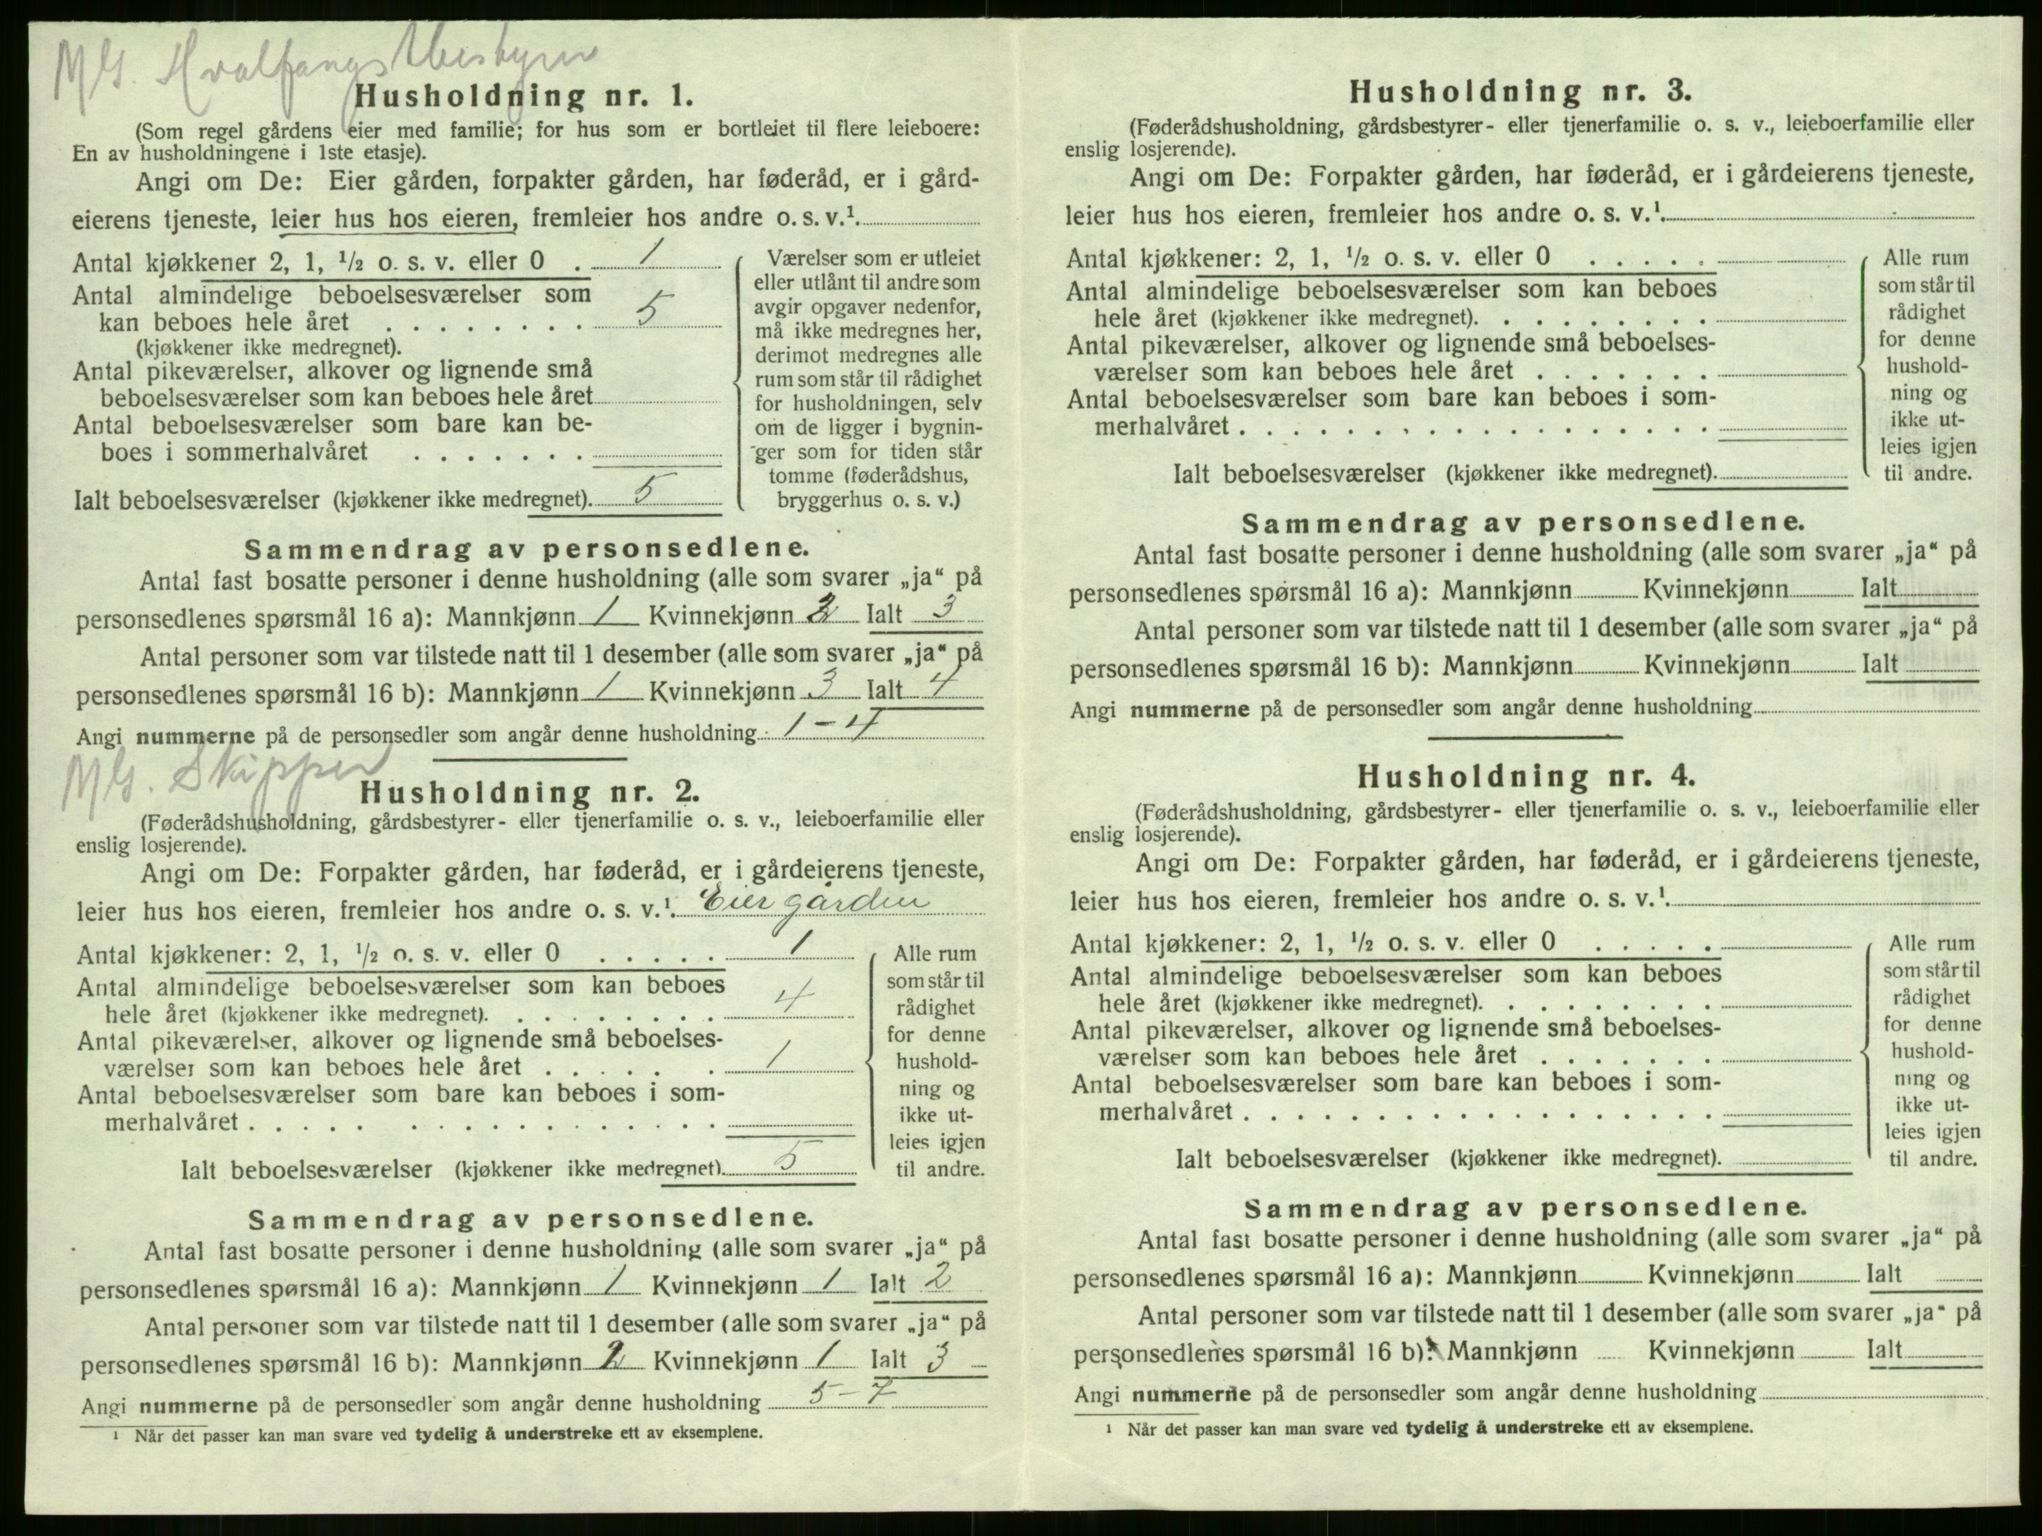 MG. Hvalfangstbestyrer
Husholdning nr. 1.
(Som regel gårdens eier med familie; for hus som er bortleiet til flere leieboere:
En av husholdningene i 1ste etasje).
Angi om De: Eier gården, forpakter gården, har føderåd, er i gård-
eierens tjeneste, leier hus hos eieren, fremleier hos andre o. s. v.¹
Antal kjøkkener 2, 1, ½ o. s. v. eller 0 . 1
Antal almindelige beboelsesværelser som
kan beboes hele året . . . . . . . . 5
(kjøkkener ikke medregnet).
Antal pikeværelser, alkover og lignende små
beboelsesværelser som kan beboes hele året
Antal beboelsesværelser som bare kan be-
boes i sommerhalvåret . . . . . . .
Ialt beboelsesværelser (kjøkkener ikke medregnet). 5
Værelser som er utleiet
eller utlånt til andre som
avgir opgaver nedenfor,
må ikke medregnes her,
derimot medregnes alle
rum som står til rådighet
for husholdningen, selv
om de ligger i bygnin-
ger som for tiden står
tomme (føderådshus,
bryggerhus o. s. v.)
Sammendrag av personsedlene.
Antal fast bosatte personer i denne husholdning (alle som svarer „ja“ på
personsedlenes spørsmål 16 a): Mannkjønn 1 Kvinnekjønn 2 Ialt 3
Antal personer som var tilstede natt til 1 desember (alle som svarer „ja“ på
personsedlenes spørsmål 16 b): Mannkjønn 1 Kvinnekjønn 3 Ialt 4
Angi nummerne på de personsedler som angår denne husholdning 1-4
MG. Skipper
Husholdning nr. 2.
(Føderådshusholdning, gårdsbestyrer- eller tjenerfamilie o. s. v., leieboerfamilie eller
enslig losjerende).
Angi om De: Forpakter gården, har føderåd, er i gårdeierens tjeneste,
leier hus hos eieren, fremleier hos andre o. s. v.¹. Eier gården
Antal kjøkkener: 2, 1, ½ o. s. v. eller 0 . . . . . 1
Antal almindelige beboelsesværelser som kan beboes
hele året (kjøkkener ikke medregnet). . . . . . . . . 4
Antal pikeværelser, alkover og lignende små beboelses-
værelser som kan beboes hele året . . . . . . 1
Antal beboelsesværelser som bare kan beboes i som-
merhalvåret . . . . . . . . . . . . . . . .
Ialt beboelsesværelser (kjøkkener ikke medregnet). 5
Alle rum
som står til
rådighet
for denne
hushold-
ning og
ikke ut-
leies igjen
til andre.
Sammendrag av personsedlene.
Antal fast bosatte personer i denne husholdning (alle som svarer „ja“ på
personsedlenes spørsmål 16 a): Mannkjønn 1 Kvinnekjønn 1 Ialt 2
Antal personer som var tilstede natt til 1 desember (alle som svarer „ja“ på
personsedlenes spørsmål 16 b): Mannkjønn 2 Kvinnekjønn 1 Ialt 3
Angi nummerne på de personsedler som angår denne husholdning 5-7
¹ Når det passer kan man svare ved tydelig å understreke ett av eksemplene.
Husholdning nr. 3.
(Føderådshusholdning, gårdsbestyrer- eller tjenerfamilie o. s. v., leieboerfamilie eller
enslig losjerende).
Angi om De: Forpakter gården, har føderåd, er i gårdeierens tjeneste,
leier hus hos eieren, fremleier hos andre o. s. v.¹.
Antal kjøkkener: 2, 1, ½ o. s. v. eller 0 . . . . .
Antal almindelige beboelsesværelser som kan beboes
hele året (kjøkkener ikke medregnet). . . . . . . . .
Antal pikeværelser, alkover og lignende små beboelses-
værelser som kan beboes hele året . . . . . . .
Antal beboelsesværelser som bare kan beboes i som-
merhalvåret . . . . . . . . . . . . . . . . . .
Ialt beboelsesværelser (kjøkkener ikke medregnet).
Alle rum
som står til
rådighet
for denne
hushold-
ning og
ikke ut-
leies igjen
til andre.
Sammendrag av personsedlene.
Antal fast bosatte personer i denne husholdning (alle som svarer „ja“ på
personsedlenes spørsmål 16 a): Mannkjønn Kvinnekjønn Ialt
Antal personer som var tilstede natt til 1 desember (alle som svarer „ja“ på
personsedlenes spørsmål 16 b): Mannkjønn Kvinnekjønn Ialt
Angi nummerne på de personsedler som angår denne husholdning
Husholdning nr. 4.
(Føderådshusholdning, gårdsbestyrer- eller tjenerfamilie o. s. v., leieboerfamilie eller
enslig losjerende).
Angi om De: Forpakter gården, har føderåd, er i gårdeierens tjeneste,
leier hus hos eieren, fremleier hos andre o. s. v.¹.
Antal kjøkkener: 2, 1, ½ o. s. v. eller 0 . . . . .
Antal almindelige beboelsesværelser som kan beboes
hele året (kjøkkener ikke medregnet). . . . . . . . .
Antal pikeværelser, alkover og lignende små beboelses-
værelser som kan beboes hele året . . . . . . .
Antal beboelsesværelser som bare kan beboes i som-
merhalvåret . . . . . . . . . . . . . . . . . .
Ialt beboelsesværelser (kjøkkener ikke medregnet).
Alle rum
som står til
rådighet
for denne
hushold-
ning og
ikke ut-
leies igjen
til andre.
Sammendrag av personsedlene.
Antal fast bosatte personer i denne husholdning (alle som svarer „ja“ på
personsedlenes spørsmål 16 a): Mannkjønn Kvinnekjønn Ialt
Antal personer som var tilstede natt til 1 desember (alle som svarer „ja“ på
personsedlenes spørsmål 16 b): Mannkjønn Kvinnekjønn Ialt
Angi nummerne på de personsedler som angår denne husholdning
¹ Når det passer kan man svare ved tydelig å understreke ett av eksemplene.